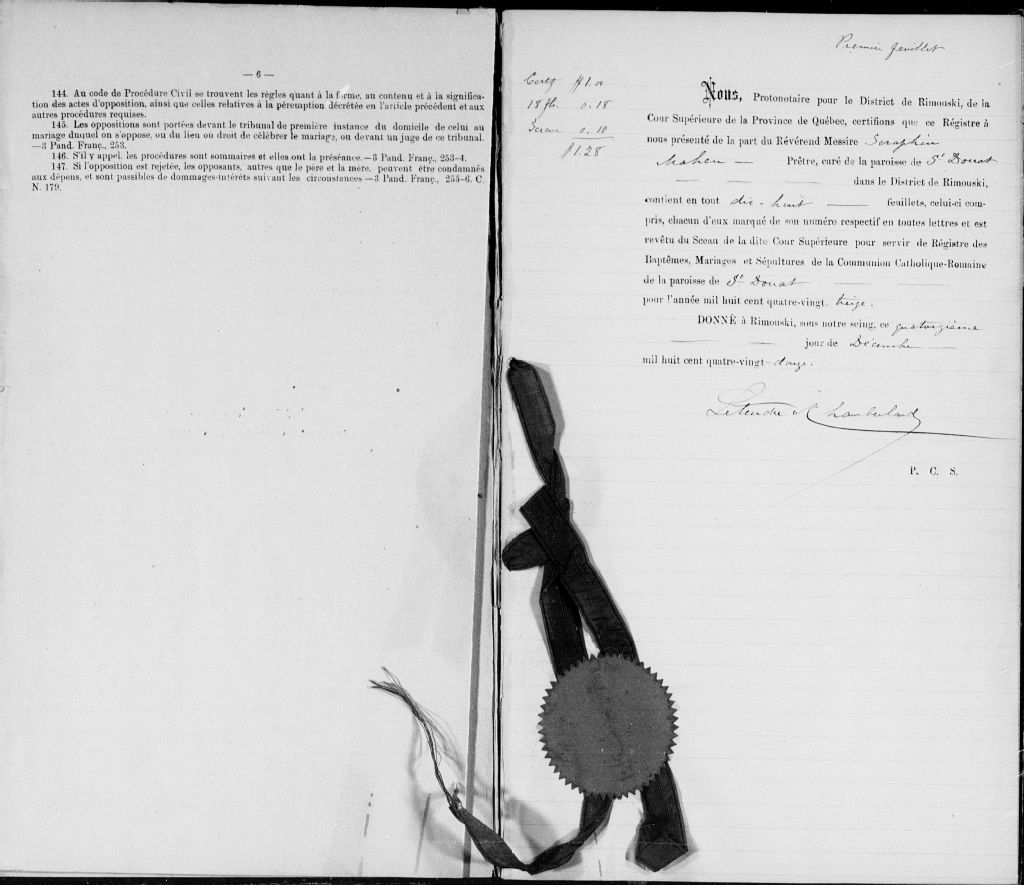 — 6 —
144. Au code de Procédure Civil se trouvent les règles quant à la forme, au contenu et à la significa-
tion des actes d'opposition, ainsi que celles relatives à la péremption décrétée en l'article précédent et aux
autres procédures requises.
145. Les oppositions sont portées devant le tribunal de première instance du domicile de celui au
mariage duquel on s'oppose, ou du lieu où droit de célèbrer le mariage, ou devant un juge de ce tribunal.
—3 Pand. Franç., 253.
146. S'il y appel, les procédures sont sommaires et elles ont la préséance.—3 Pand. Franç., 253-4.
147. Si l'opposition est rejetée, les opposants, autres que le père et la mère, peuvent être condamnés
aux dépens, et sont passibles de dommages-intérêts suivant les circonstances—3 Pand. Franç., 255-6. C.
N. 179.
Premier feuillet
Certf $1.00
18 fls. 0.18
Sceau 0.10
$1.28
Nous, Protonotaire pour le District de Rimouski, de la
Cour Supérieure de la Province de Québec, certifions que ce Régistre à
nous présenté de la part du Révérend Messire Seraphin
Maheu — Prêtre, curé de la paroisse de St Donat
— — — dans le District de Rimouski,
contient en tout dix-huit — feuillets, celui-ci com-
pris, chacun d'eux marqué de son numéro respectif en toutes lettres et est
revêtu du Sceau de la dite Cour Supérieure pour servir de Régistre des
Baptêmes, Mariages et Sépultures de la Communion Catholique-Romaine
de la paroisse de St Donat — —
pour l'année mil huit cent quatre-vingt-treize.
DONNÉ à Rimouski, sous notre seing, ce quatorzième
— — jour de Décembre —
mil huit cent quatre-vingt-douze.
Letendre & Chamberland
P. C. S.